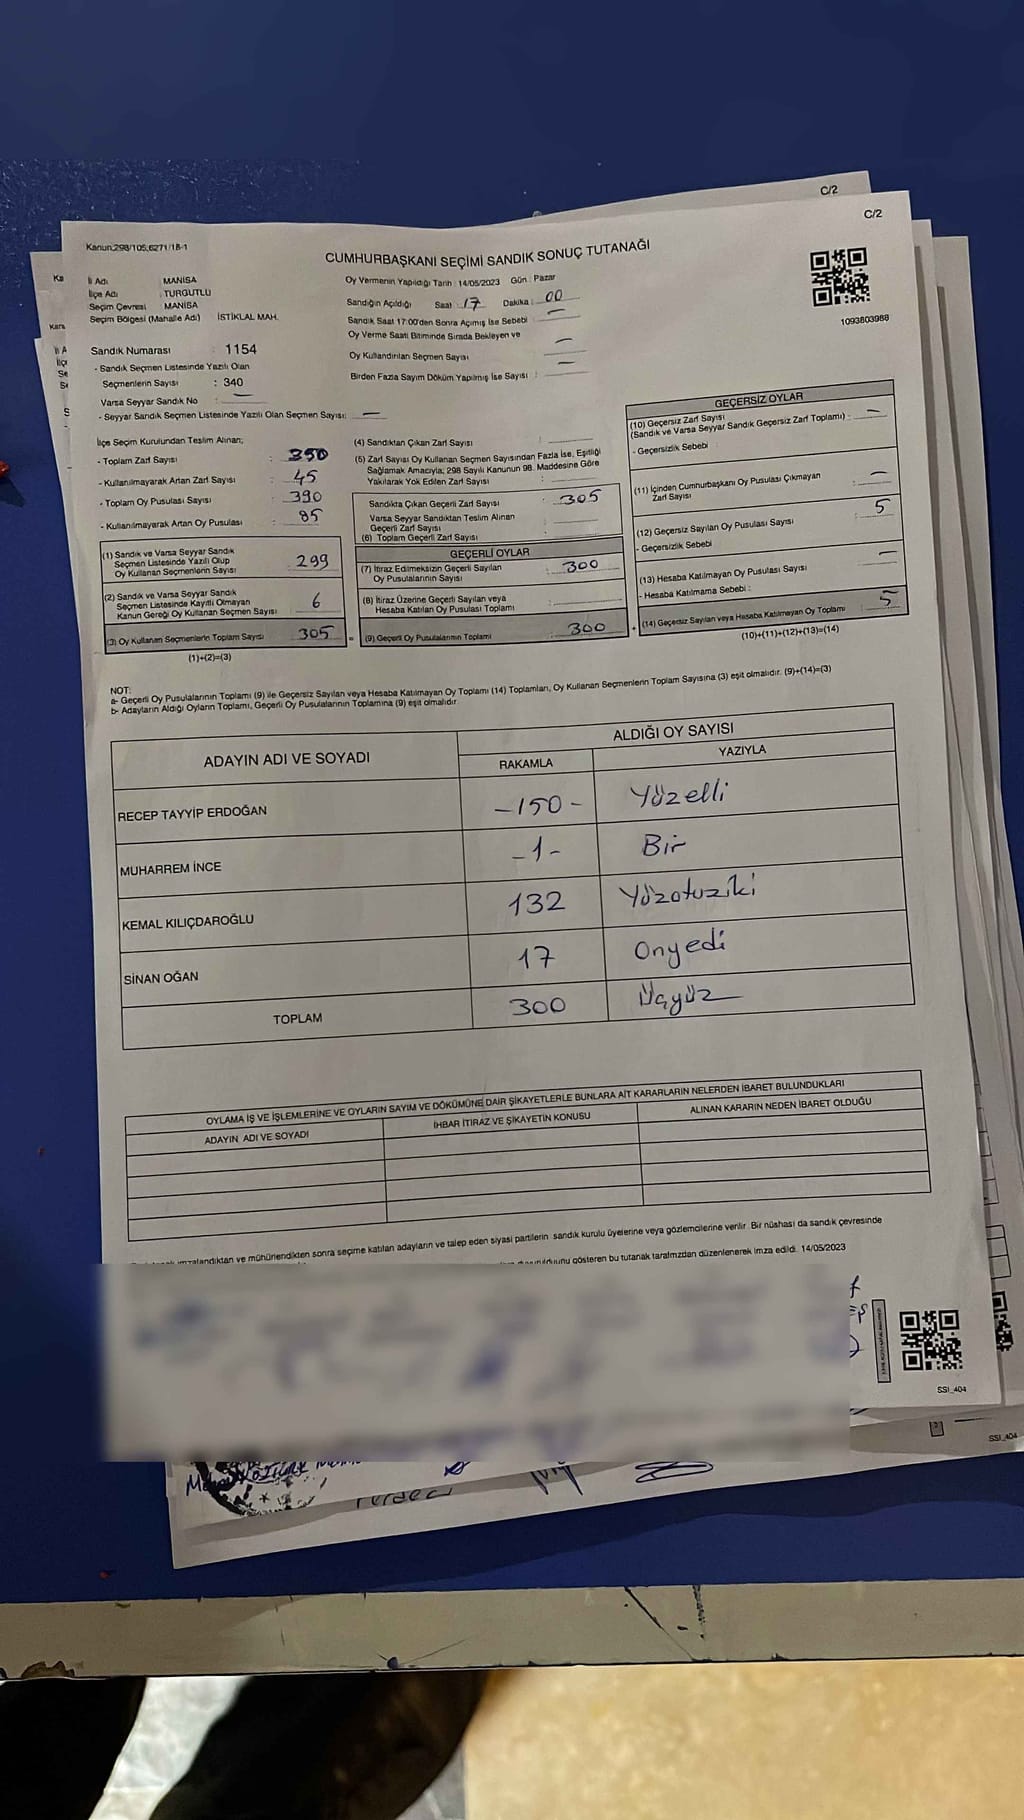 C/2
C/2
Kanun;298/105;6271/18-1
CUMHURBAŞKANI SEÇİMİ SANDIK SONUÇ TUTANAĞI
İl Adı : MANİSA
İlçe Adı : TURGUTLU
Seçim Çevresi : MANİSA
Seçim Bölgesi (Mahalle Adı) : İSTİKLAL MAH.
Oy Vermenin Yapıldığı Tarih : 14/05/2023 Gün : Pazar
Sandığın Açıldığı Saat : 17 Dakika : 00
Sandık Saat 17:00'den Sonra Açılmış İse Sebebi : —
Oy Verme Saati Bitiminde Sırada Bekleyen ve
Oy Kullandırılan Seçmen Sayısı —
Birden Fazla Sayım Döküm Yapılmış İse Sayısı : —
1093803988
Sandık Numarası : 1154
- Sandık Seçmen Listesinde Yazılı Olan
Seçmenlerin Sayısı : 340
Varsa Seyyar Sandık No : —
- Seyyar Sandık Seçmen Listesinde Yazılı Olan Seçmen Sayısı: —
İlçe Seçim Kurulundan Teslim Alınan;
- Toplam Zarf Sayısı : 350
- Kullanılmayarak Artan Zarf Sayısı : 45
- Toplam Oy Pusulası Sayısı : 390
- Kullanılmayarak Artan Oy Pusulası : 85
(1) Sandık ve Varsa Seyyar Sandık
Seçmen Listesinde Yazılı Olup
Oy Kullanan Seçmenlerin Sayısı : 299
(2) Sandık ve Varsa Seyyar Sandık
Seçmen Listesinde Kayıtlı Olmayan
Kanun Gereği Oy Kullanan Seçmen Sayısı : 6
(3) Oy Kullanan Seçmenlerin Toplam Sayısı : 305
(1)+(2)=(3)
(4) Sandıktan Çıkan Zarf Sayısı :
(5) Zarf Sayısı Oy Kullanan Seçmen Sayısından Fazla İse, Eşitliği
Sağlamak Amacıyla; 298 Sayılı Kanunun 98. Maddesine Göre
Yakılarak Yok Edilen Zarf Sayısı :
Sandıkta Çıkan Geçerli Zarf Sayısı : 305
Varsa Seyyar Sandıktan Teslim Alınan
Geçerli Zarf Sayısı :
(6) Toplam Geçerli Zarf Sayısı :
GEÇERLİ OYLAR
(7) İtiraz Edilmeksizin Geçerli Sayılan
Oy Pusulalarının Sayısı : 300
(8) İtiraz Üzerine Geçerli Sayılan veya
Hesaba Katılan Oy Pusulası Toplamı :
(9) Geçerli Oy Pusulalarının Toplamı : 300
GEÇERSİZ OYLAR
(10) Geçersiz Zarf Sayısı
(Sandık ve Varsa Seyyar Sandık Geçersiz Zarf Toplamı) : —
- Geçersizlik Sebebi :
(11) İçinden Cumhurbaşkanı Oy Pusulası Çıkmayan
Zarf Sayısı : —
(12) Geçersiz Sayılan Oy Pusulası Sayısı : 5
- Geçersizlik Sebebi :
(13) Hesaba Katılmayan Oy Pusulası Sayısı : —
- Hesaba Katılmama Sebebi :
(14) Geçersiz Sayılan veya Hesaba Katılmayan Oy Toplamı : 5
(10)+(11)+(12)+(13)=(14)
NOT:
a- Geçerli Oy Pusulalarının Toplamı (9) ile Geçersiz Sayılan veya Hesaba Katılmayan Oy Toplamı (14) Toplamları, Oy Kullanan Seçmenlerin Toplam Sayısına (3) eşit olmalıdır. (9)+(14)=(3)
b- Adayların Aldığı Oyların Toplamı, Geçerli Oy Pusulalarının Toplamına (9) eşit olmalıdır.
ADAYIN ADI VE SOYADI ALDIĞI OY SAYISI
RAKAMLA YAZIYLA
RECEP TAYYİP ERDOĞAN -150- Yüzelli
MUHARREM İNCE -1- Bir
KEMAL KILIÇDAROĞLU 132 Yüzotuziki
SİNAN OĞAN 17 Onyedi
TOPLAM 300 Üçyüz
OYLAMA İŞ VE İŞLEMLERİNE VE OYLARIN SAYIM VE DÖKÜMÜNE DAİR ŞİKAYETLERLE BUNLARA AİT KARARLARIN NELERDEN İBARET BULUNDUKLARI
ADAYIN ADI VE SOYADI İHBAR İTİRAZ VE ŞİKAYETİN KONUSU ALINAN KARARIN NEDEN İBARET OLDUĞU
imzalandıktan ve mühürlendikten sonra seçime katılan adayların ve talep eden siyasi partilerin sandık kurulu üyelerine veya gözlemcilerine verilir. Bir nüshası da sandık çevresinde
gösteren bu tutanak tarafımızdan düzenlenerek imza edildi. 14/05/2023
SSI_404
SSI_404